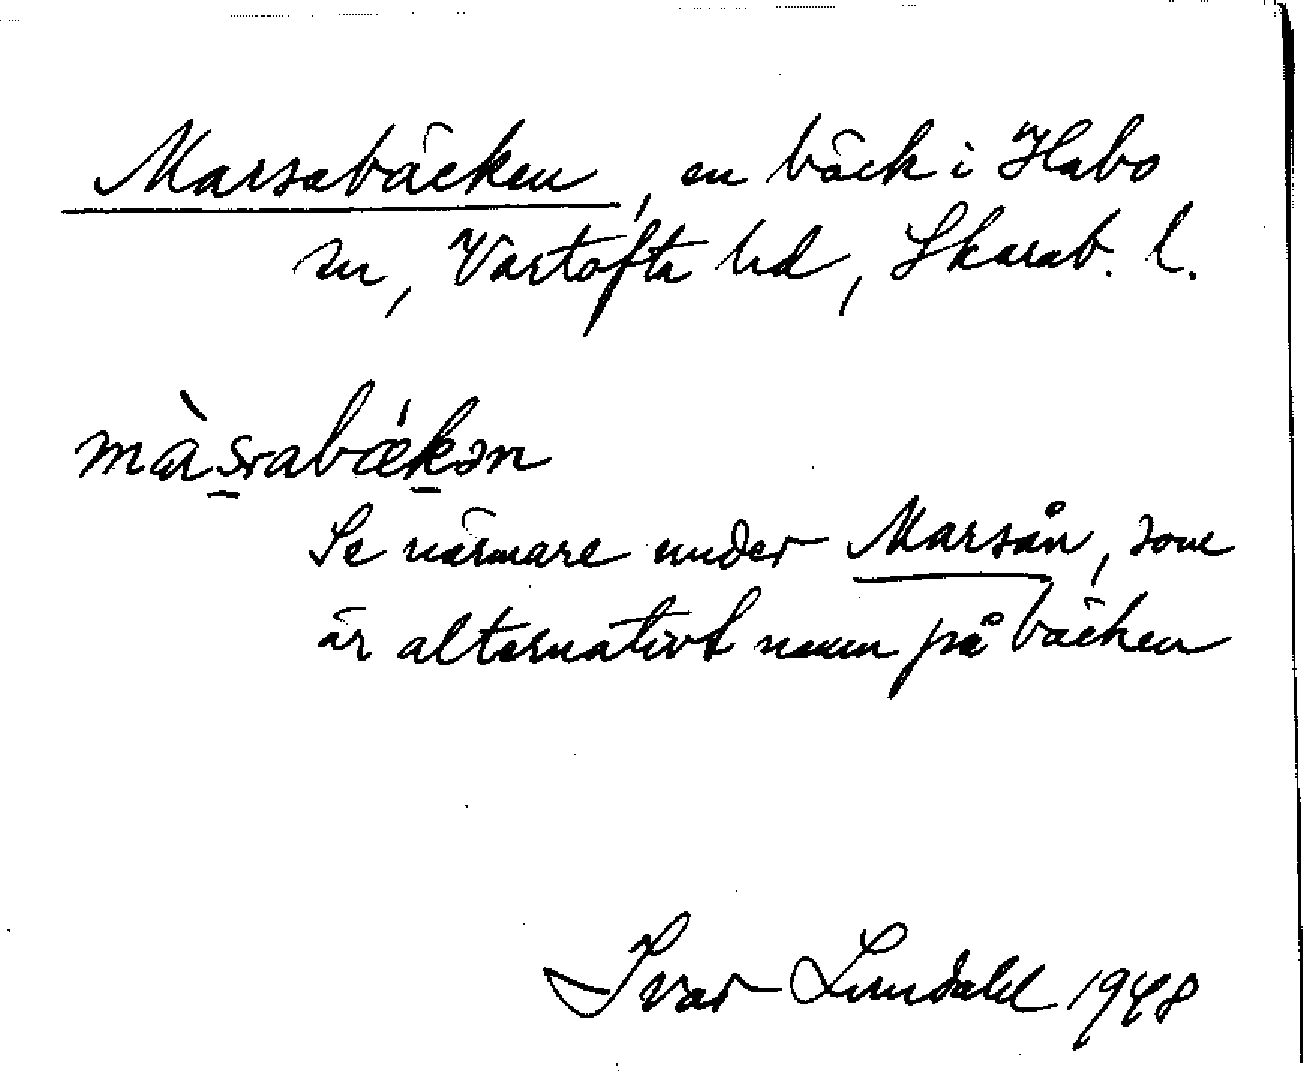 Marsabäcken, en bäck i Habo
sn, Vartofta hd, Skarab. l.
màs̠rabæ̀k̠ən
Se närmare under Marsån, som
är alternativt namn på bäcken
Ivar Lundahl 1948